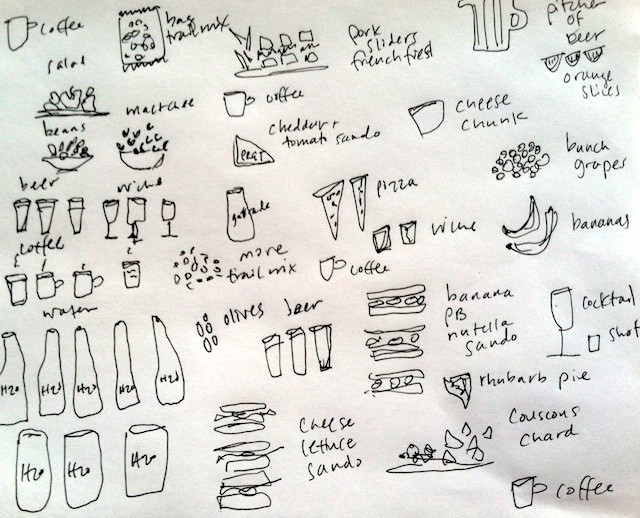 coffee
bag
trail mix
pork
sliders
french fries
pitcher
of
beer
orange
slices
salad
coffee
cheese
chunk
beans
cheddar +
tomato sando
bunch
grapes
beer
wine
gatorade
pizza
wine
bananas
coffee
more
trail mix
coffee
water
olives
beer
banana
PB
nutella
sando
cocktail
shot
H20
H20
H20
H20
H20
rhubarb pie
cheese
lettuce
sando
couscous
chard
H20
H20
H20
coffee